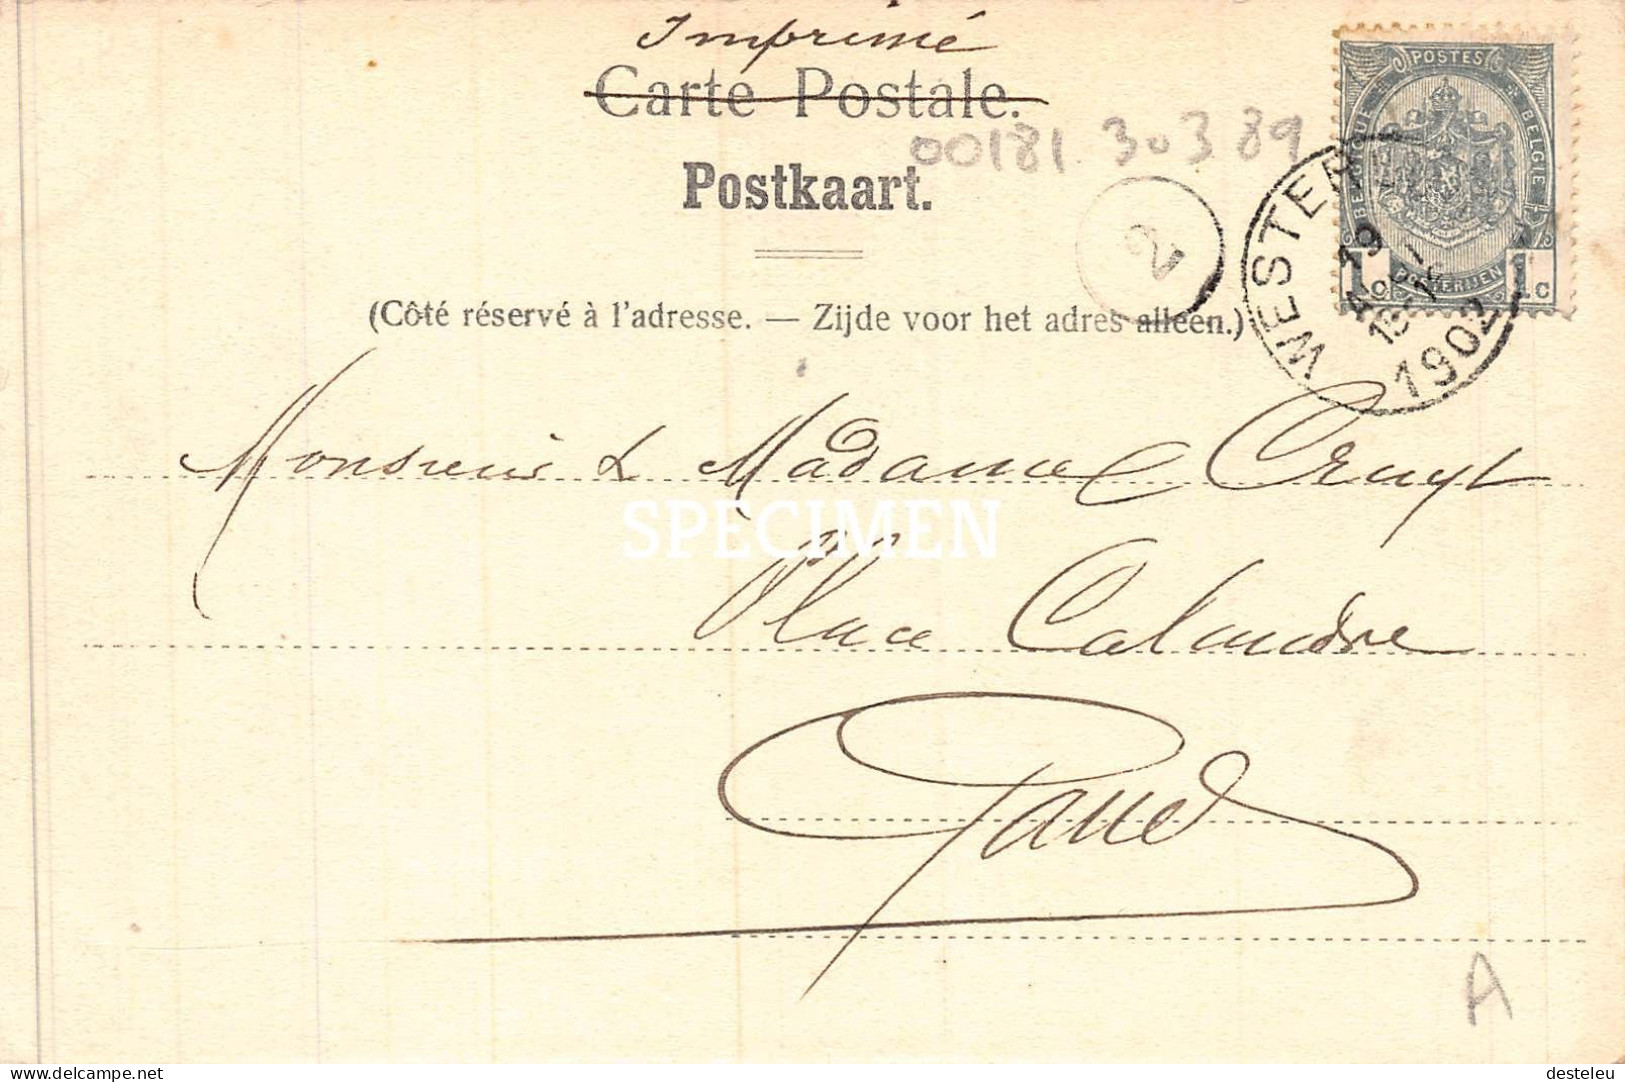 Imprimé
Carte Postale.
00181 30389
Postkaart.
2
(Côté réservé à l'adresse. — Zijde voor het adres alleen.)
POSTES
BELGIQUE BELGIE
POSTERIJEN
1c 1c
WESTER
19
1902
Monsieur & Madame Cruyt
SPECIMEN
Place Calandre
Gand
A
desteleu